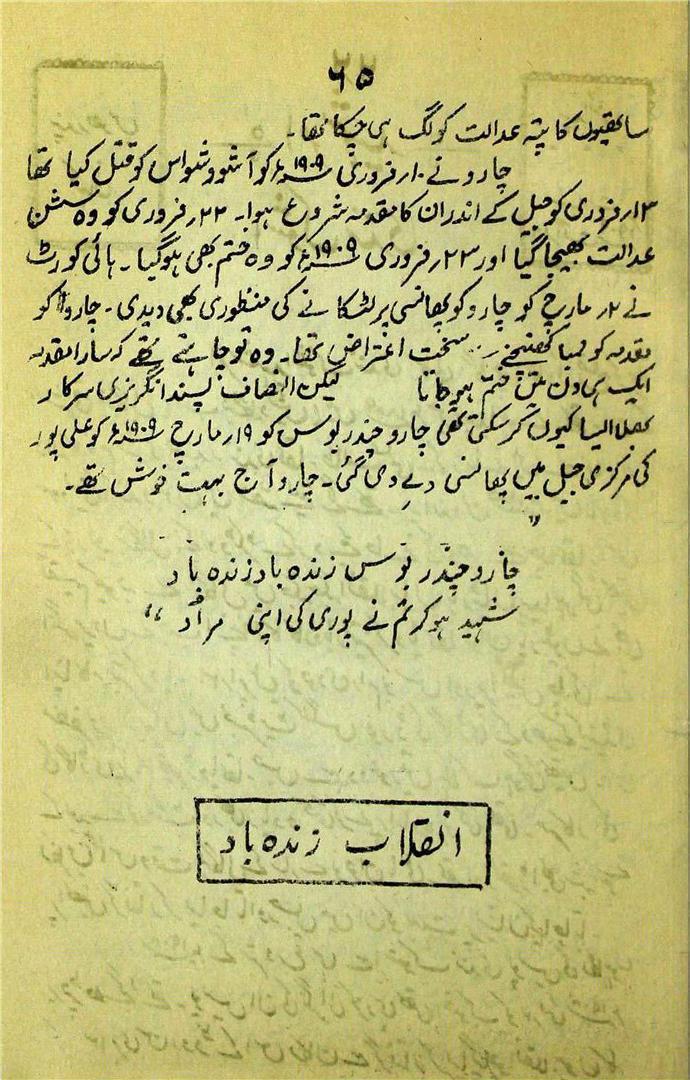 ۶۵
ساتھیوں کا پتہ عدالت کو لگ ہی چکا تھا۔
چارو نے ۱۰ر فروری ۱۹۰۹ء کو آشو وشواس کو قتل کیا تھا
۱۳ر فروری کو جیل کے اندر ان کا مقدمہ شروع ہوا۔ ۲۲ر فروری کو وہ سشن
عدالت بھیجا گیا اور ۲۳ر فروری ۱۹۰۹ء کو وہ ختم بھی ہوگیا۔ ہائی کورٹ
نے ۲ر مارچ کو چارو کو پھانسی پر لٹکانے کی منظوری بھی دیدی۔ چارو کو
مقدمہ کو لمبا کھینچنے سخت اعتراض تھا۔ وہ تو چاہتے تھے کہ سارا مقدمہ
ایک ہی دن میں ختم ہو جاتا لیکن انصاف پسند انگریزی سرکار
بھلا ایسا کیوں کر سکتی تھی چارو چندر بوس کو ۱۹ر مارچ ۱۹۰۹ء کو علی پور
کی مرکزی جیل میں پھانسی دے دی گئی۔ چارو آج بہت خوش تھے۔
"
چارو چندر بوس زندہ باد زندہ باد
شہید ہو کر تم نے پوری کی اپنی مراد "
انقلاب زندہ باد